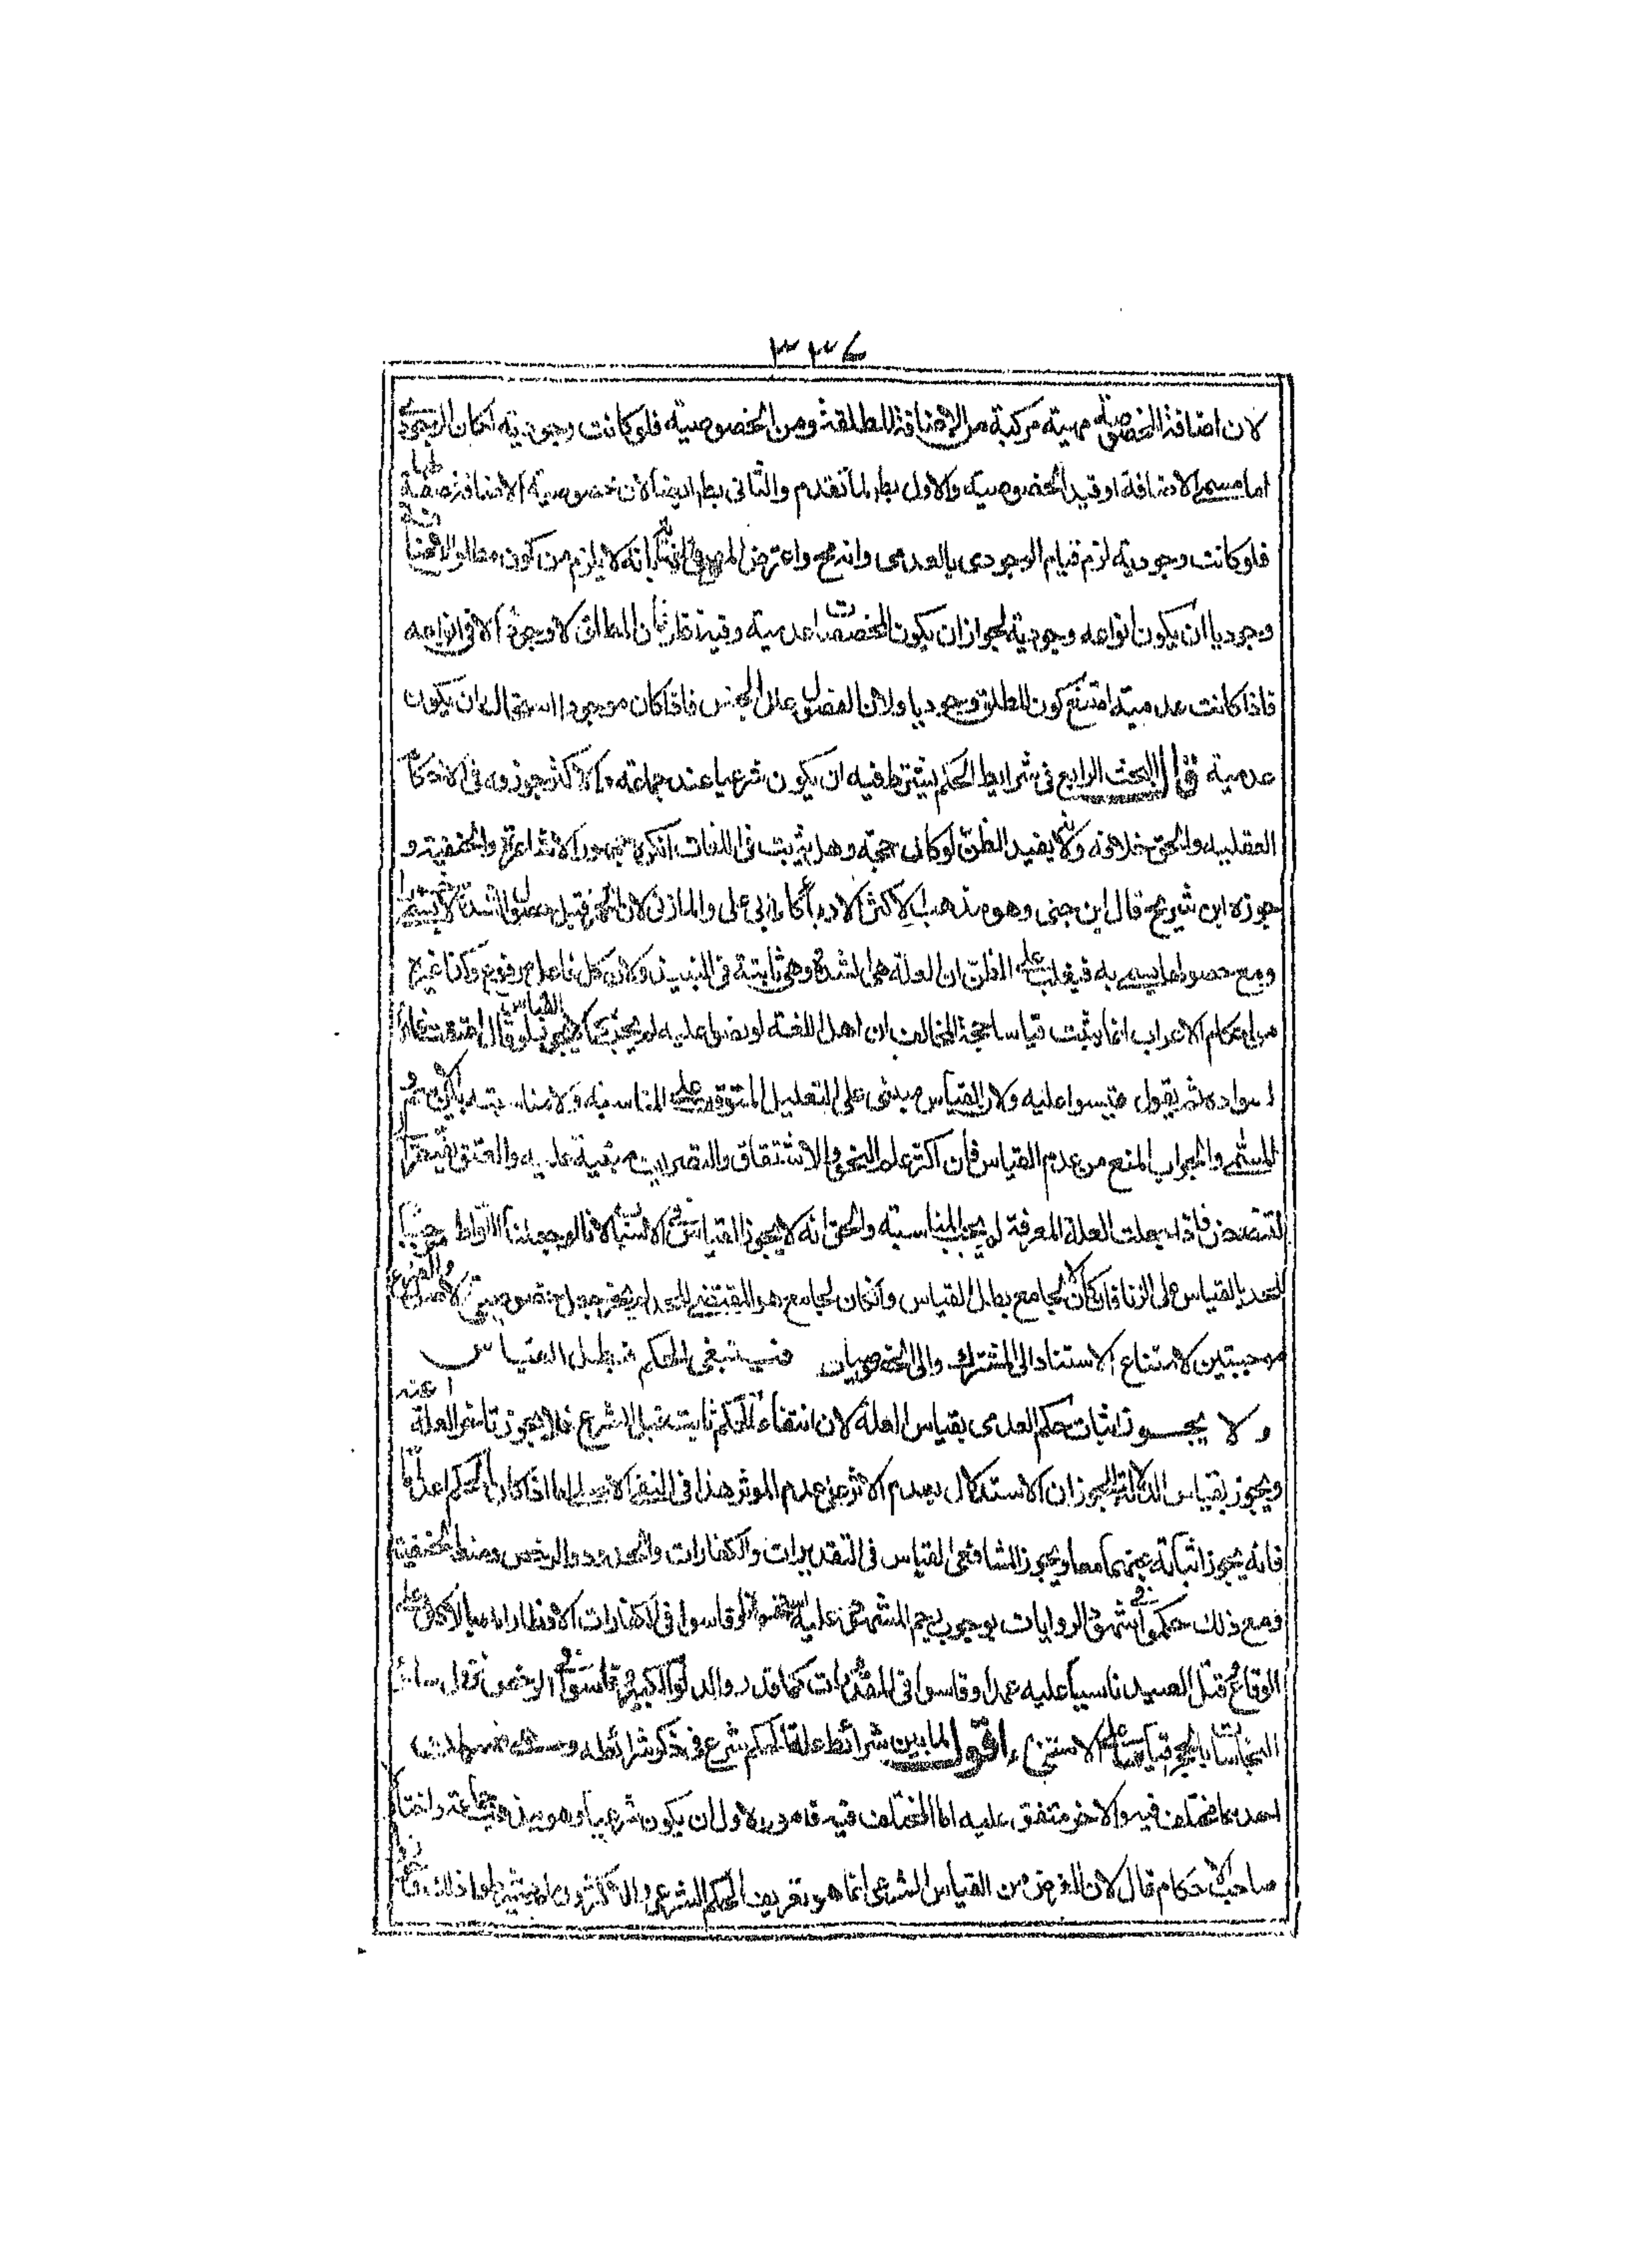 ٣٣٤
لان اضافة الخصوصية مهية مركبة من الاضافة المطلقة ومن الخصوصية فلو كانت وجودية لكان الوجودى
اما مسمى الاضافة او قيد الخصوصية والاول بط لما تقدم والثانى بط ايضا لان خصوصية الاضافة صفة لها
فلو كانت وجودية لزم قيام الوجودى بالعدمى واعترض المص بانه لا يلزم من كون مطلق الاضافة
وجوديا ان يكون انواعه وجودية لجواز ان يكون المخصصات عدمية وفيه نظر فان المطلق لا وجود له الا فى انواعه
فاذا كانت عدمية امتنع كون المطلق وجوديا ولان الفصل علة الجنس فاذا كان موجودا استحال ان يكون
عدمية قال البحث الرابع فى شرايط الحكم يشترط فيه ان يكون شرعيا عند جماعة والاكثر جوزوه فى الاحكام
العقلية والحق خلافه ولانه يفيد الظن لو كان حجة وهل يثبت فى اللغات انكره جمهور الاشاعرة والحنفية و
جوزه ابن شريح قال ابن جنى وهو مذهب اكثر الادباء كابى على والمازنى لان الخمر قبل حصول الشدة لا يسمى خمرا
ومع حصولها يسمى به فيغلب على الظن ان العلة هى الشدة وهى ثابتة فى النبيذ ولان كل فاعل مرفوع وكذا غيره
من احكام الاعراب انما يثبت قياسا حجة المخالف ان اهل اللغة لو نصوا عليه لم يجز القياس كما لا يجوز لو قال اعتقت غانما
لسواده ثم يقول قيسوا عليه ولان القياس مبنى على التعليل المتوقف على المناسبة ولا مناسبة بين الاسم
المسمى والجواب المنع من عدم القياس فان اكثر علم النحو والاشتقاق والتصريف مبنية عليه والعتق
فاذا جعلت العلة المعرفة لم يجب المناسبة والحق انه لا يجوز القياس فى الاسباب لانا لو جعلنا اللواط موجبا
للحد بالقياس على الزنا فان كان لا لجامع بطل القياس وان كان لجامع هو المقتضى للحد لم يجز جعل خصوصيتى الاصل والفرع
موجبتين لامتناع الاستناد الى المشترك والى الخصوصيات فينتفى الحكم فبطل القياس
ولا يجوز اثبات حكم العدمى بقياس العلة لان انتفاء الحكم ثابت قبل الشرع فلا يجوز تاخر العلة عنه
ويجوز بقياس الدلالة لجواز ان الاستدلال بعدم الاثر على عدم الموثر هذا فى النفى الاصلى اما اذا كان الحكم اعداما
فانه يجوز اثباته بهما معا ويجوز الشافعى القياس فى التقديرات والكفارات والحدود والرخص ومنعه الحنفية
فمع ذلك حكموا فى الروايات بوجوب رجم المشهود عليه وقاسوا فى الكفارات الافطار بالاكل على
الوقاع قتل الصيد ناسيا عليه عمدا وقاسوا فى المقدرات كما قدروا الدلو والبئر وقاسوا الرخص سائر
النجاسات بالحجر قياسا على الاستنجاء اقول لما بين شرائط علة الحكم شرع فى ذكر شرائطه وهى ضربان
احدهما مختلف فيه والاخر متفق عليه اما المختلف فيه فامور الاول ان يكون شرعيا وهو مذهب جماعة واختاره
صاحب الاحكام قال لان الغرض من القياس الشرعى انما هو تعريف الحكم الشرعى والاكثرون لم يشترطوا ذلك